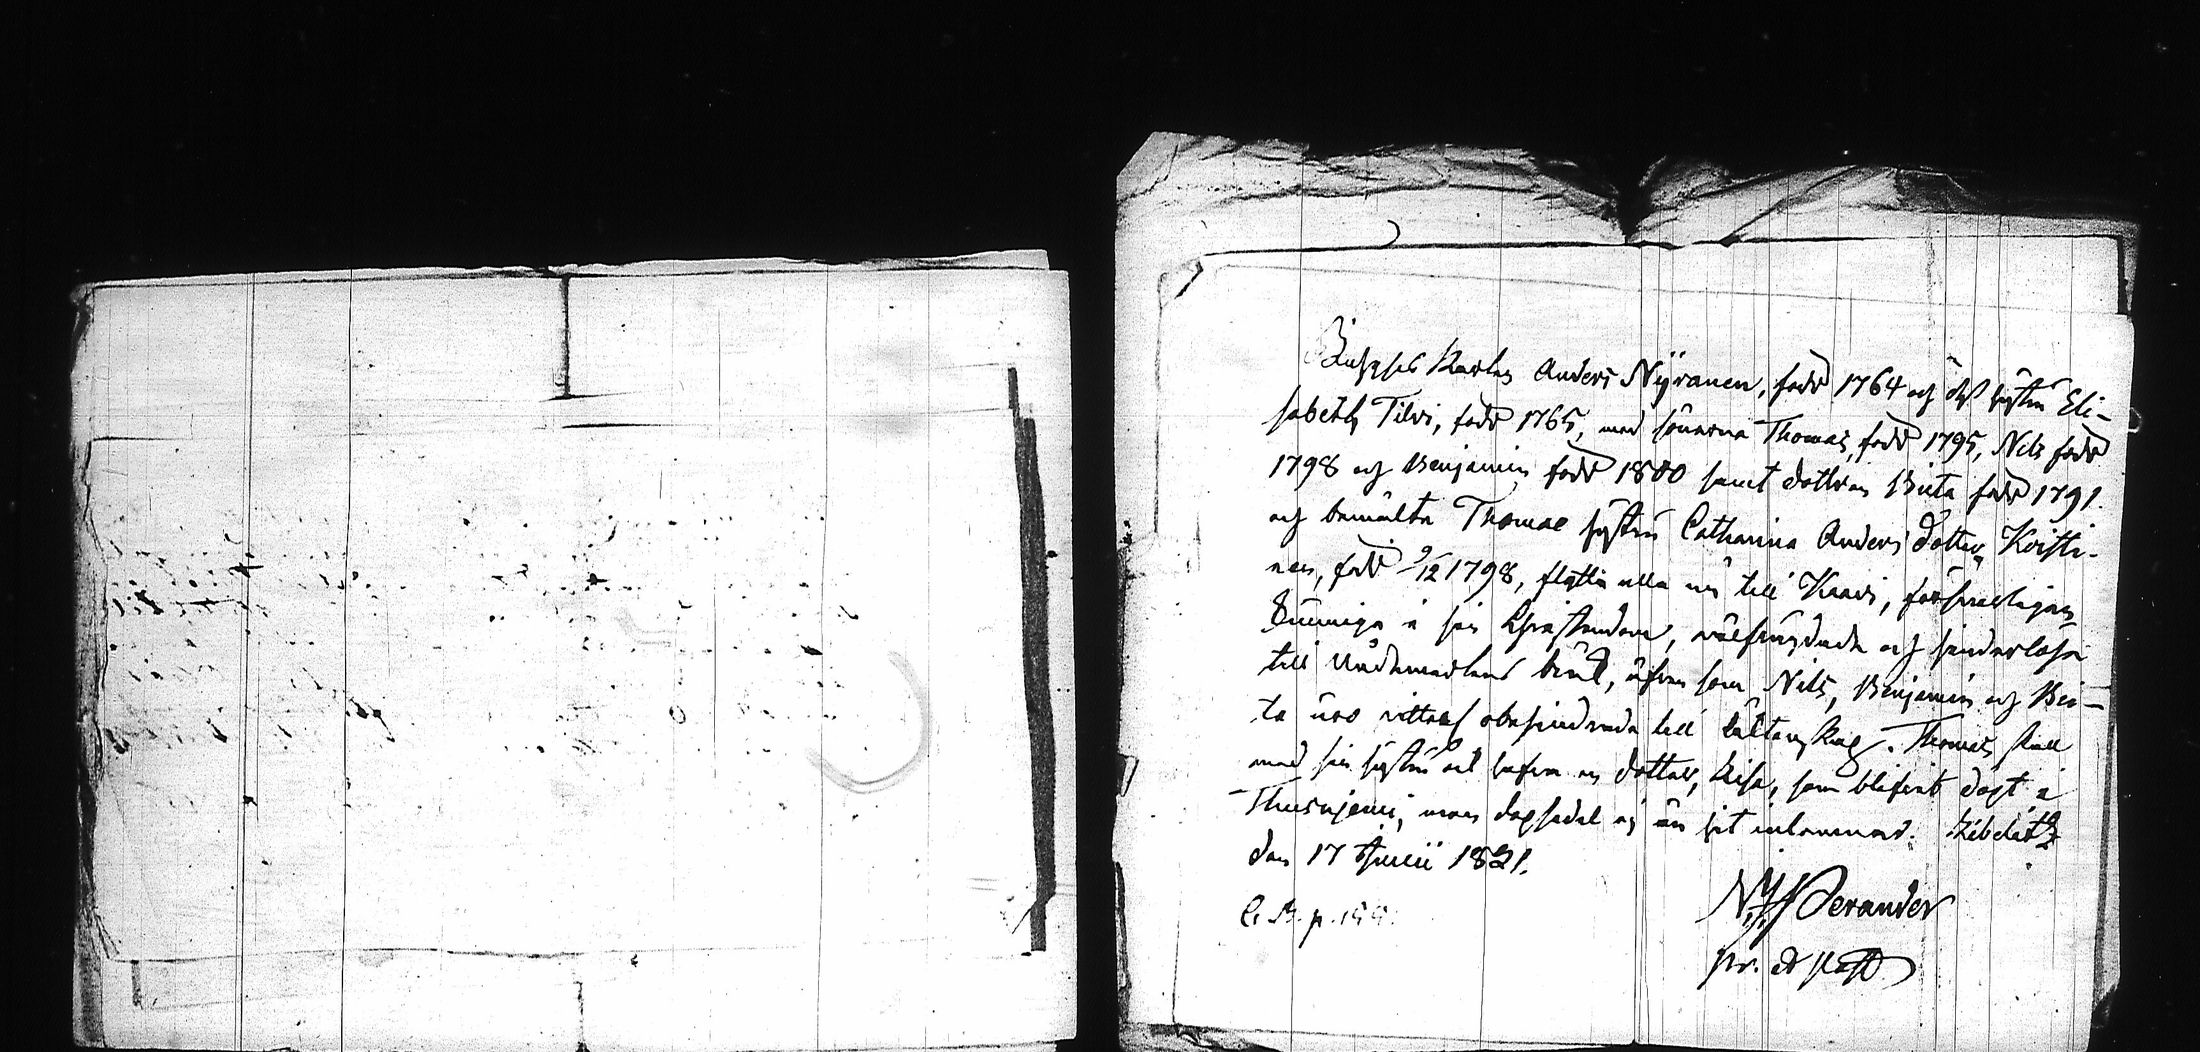 Karlen Anders Nÿranen, född 1764 och dess hustru Eli-
sabeth Tilvi, född 1765, med sönerna Thomas, född 1795, Nils född
1798 och Benjamin född 1800 samt dottren Brita född 1791.
och bemälte Thomae hustru Catharina Anders dotter Kristi-
nen, född 9/12 1798, flytta alla nu till Kaavi, försvarligen
kunnige i sin Christendom, välfrägdade och hinderlösa
till Nådemedlens bruk, äfven som Nils, Benjamin och Bri-
ta äro vitterl. obehindrade till äktenskap. Thomas skall
med sin hustru ock hafva en dotter, Lisa, som blifvit döpt i
Thusnjemi, men dopsedel ej än hit inkommit. Libelits
den 17 Junii 1821.
C. B. p. 155.
Perander